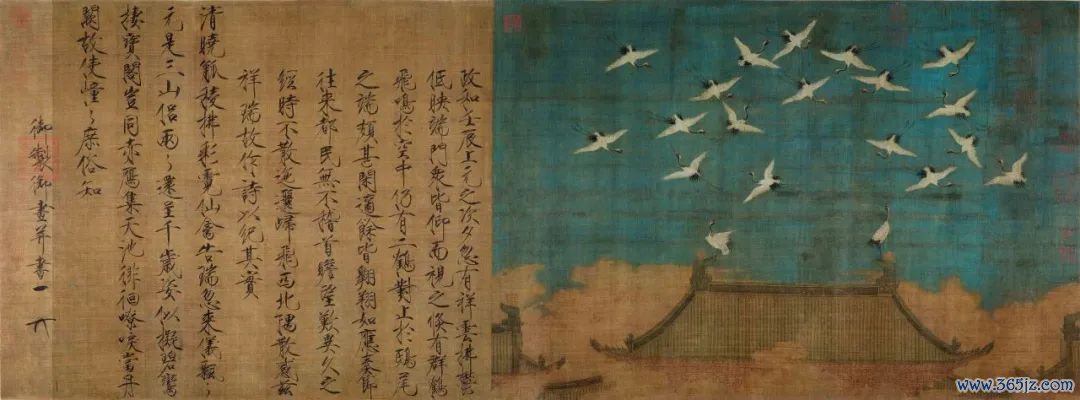 政和壬辰上元之次夕忽有祥雲拂鬱
低映端門眾皆仰而視之倏有群鶴
飛鳴於空中仍有二鶴對止於鴟尾
之端頗甚閑適餘皆翱翔如應奏節
往來都民無不稽首瞻望歎異久之
經時不散迤邐歸飛西北隅散感茲
祥瑞故作詩以紀其實
清曉觚稜拂彩霓仙禽告瑞忽來儀飄〻
元是三山侶兩〻還呈千歲姿似擬碧鸞
棲寶閣豈同赤鴈集天池徘徊嘹唳當丹
闕故使憧〻庶俗知
御製御畫并書
www.365jz.com